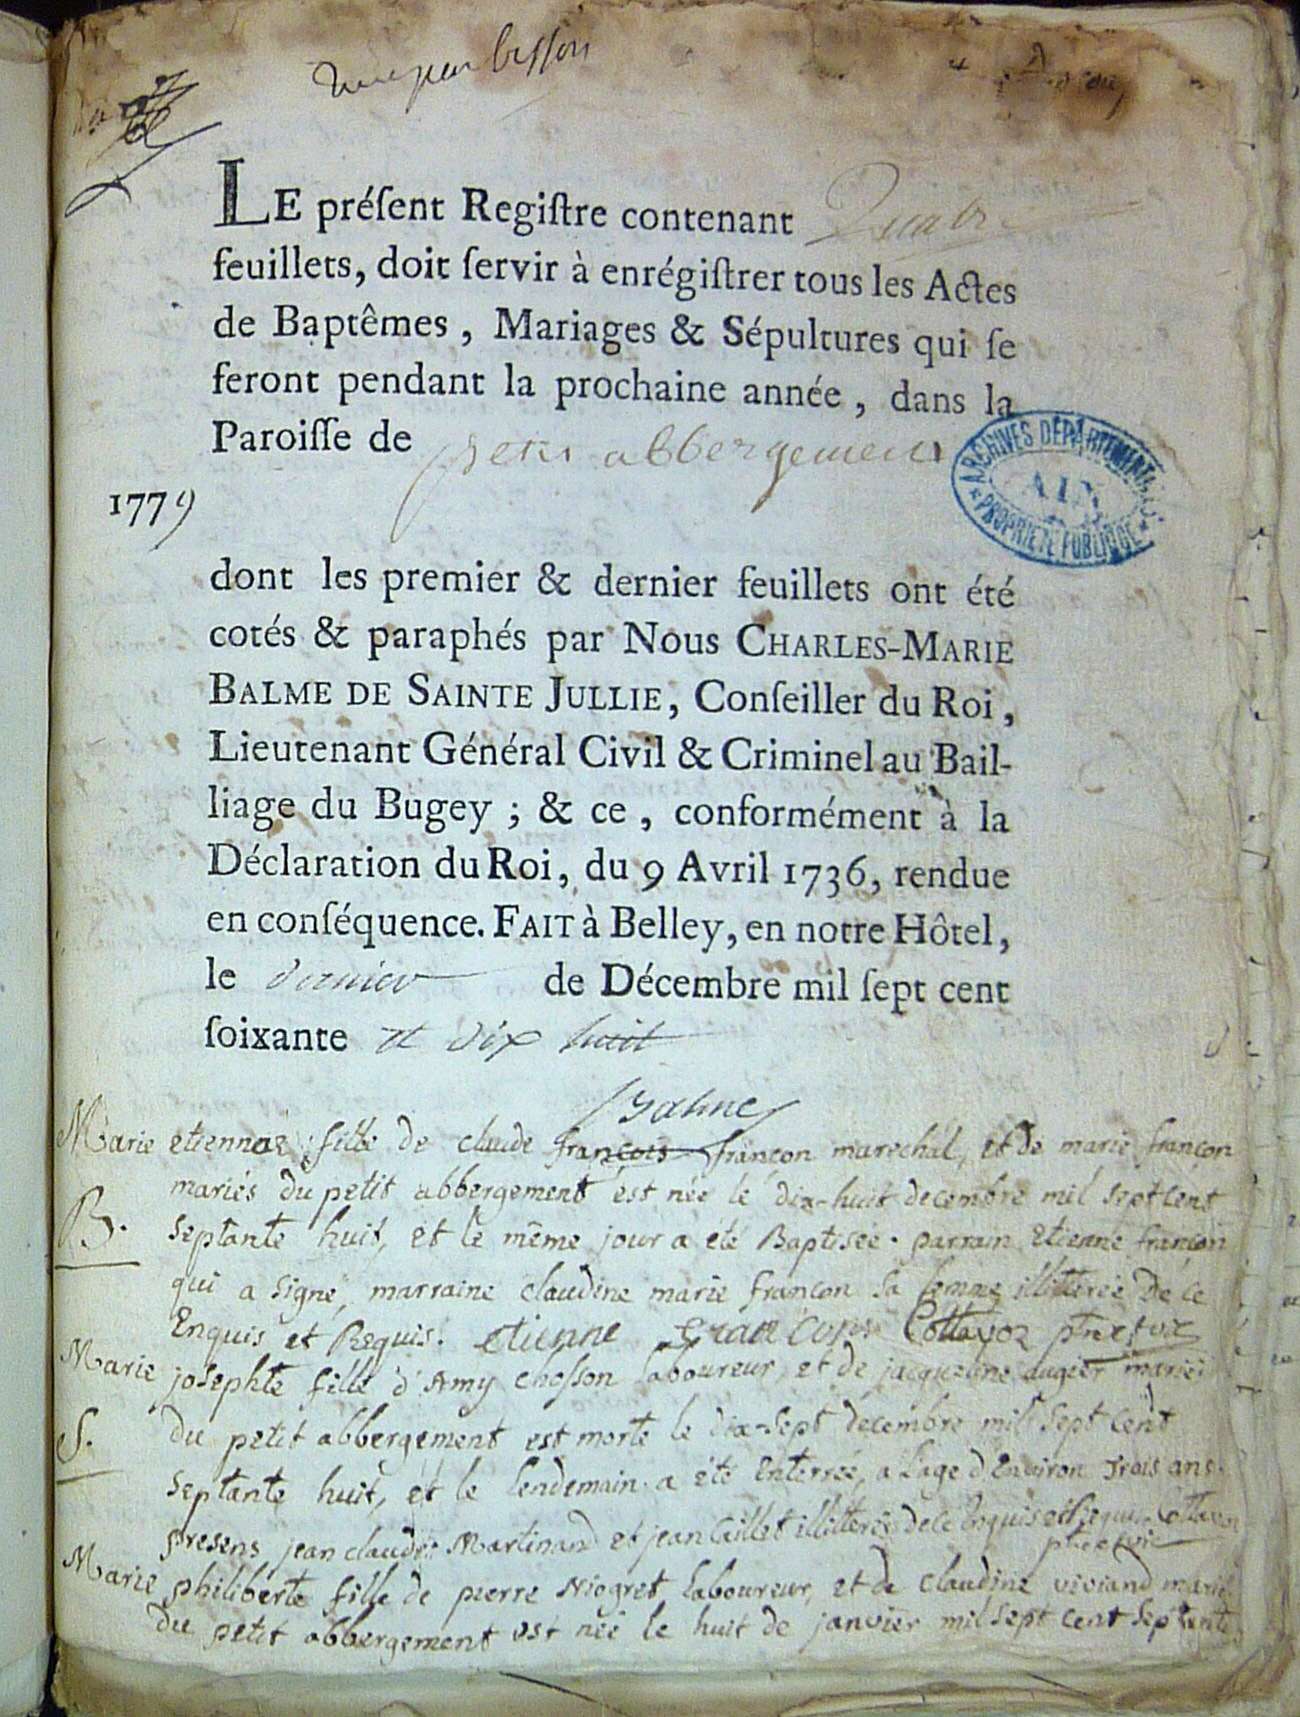 LE préſent Regiſtre contenant Quatre
feuillets, doit ſervir à enrégiſtrer tous les Actes
de Baptêmes, Mariages & Sépultures qui ſe
feront pendant la prochaine année, dans la
Paroiſſe de petit abbergement
ARCHIVES DÉPARTEMENTALES
AIN
PROPRIÉTÉ PUBLIQUE
1779
dont les premier & dernier feuillets ont été
cotés & paraphés par Nous CHARLES-MARIE
BALME DE SAINTE JULLIE, Conſeiller du Roi,
Lieutenant Général Civil & Criminel au Bail-
liage du Bugey ; & ce, conformément à la
Déclaration du Roi, du 9 Avril 1736, rendue
en conſéquence. FAIT à Belley, en notre Hôtel,
le dernier de Décembre mil ſept cent
ſoixante et dix huit
Balme
Marie etiennae fille de claude françois françon marechal, et de marie françon
mariés du petit abbergement est née le dix-huit decembre mil sept cent
B. septante huit, et le même jour a été Baptisée. parrain etienne françon
qui a signé, marraine claudine marie françon sa femme illitterée De ce
Enquis et Requis. etienne françon Cottavoz ptre et vic
Marie josephte fille d'Amy chosson laboureur, et de jacquezine augier mariés
du petit abbergement est morte le dix-sept decembre mil sept cent
S. septante huit, et le lendemain a été Enterrée, a l'age d'Environ trois ans.
presens jean claude Martinand et jean Caillet illitterés de ce Enquis et Requis Cottavoz
ptre et vic
Marie philiberte fille de pierre Niogret laboureur, et de claudine viviand mariés
du petit abbergement est née le huit de janvier mil sept cent septante